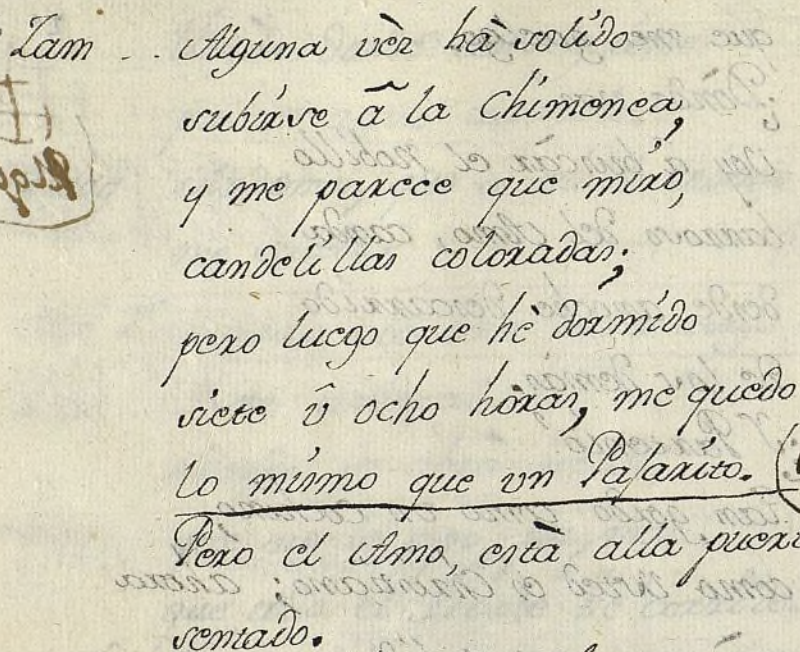 Zam .. Alguna vèz hà solido
subirse â la Chimenea,
y me parece que miro,
candelillas coloradas;
pero luego que hè dormido
siete û ocho horas, me quedo
lo mismo que un Pasarito.
Pero el Amo, està alla
sentado.